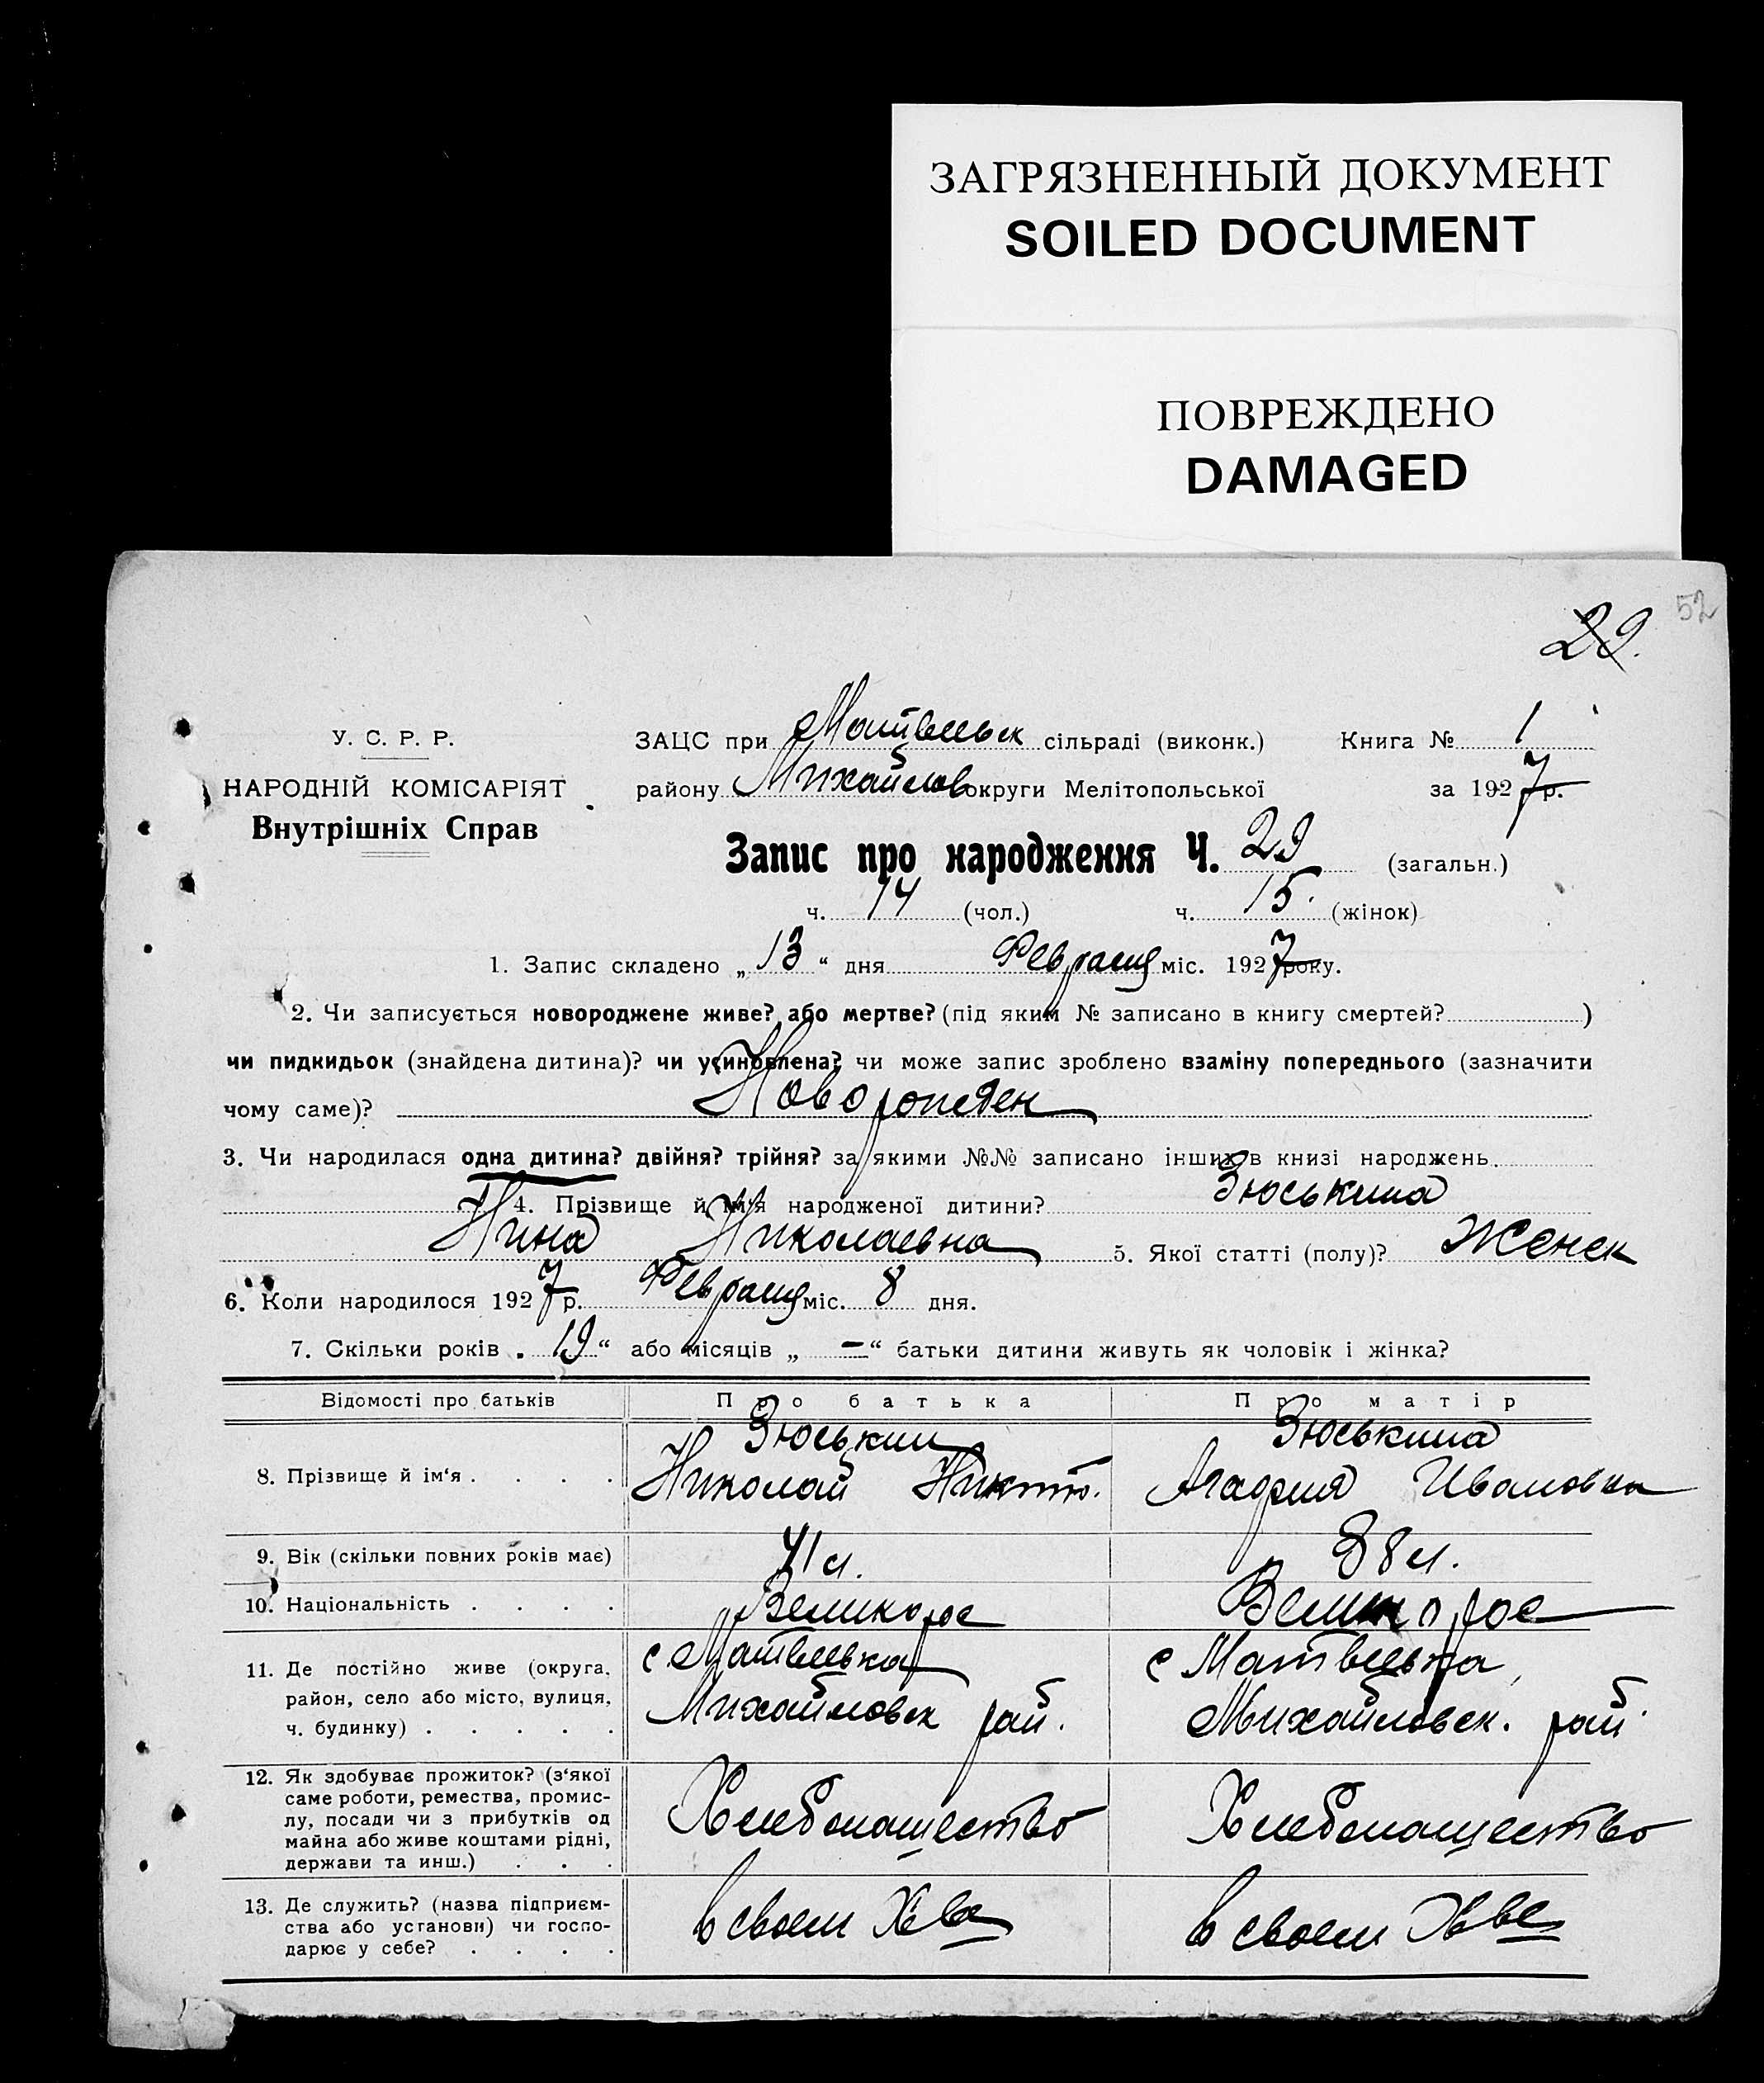 ЗАГРЯЗНЕННЫЙ ДОКУМЕНТ
SOILED DOCUMENT
ПОВРЕЖДЕНО
DAMAGED
52
29.
У. С. Р. Р.
НАРОДНІЙ КОМІСАРІЯТ
Внутрішніх Справ
ЗАЦС при Матвеевск сільраді (виконк.) Книга № 1
району Михайлов округи Мелітопольської за 1927 р.
Запис про народження Ч. 29 (загальн.)
ч. 14 (чол.) ч. 15. (жінок)
1. Запис складено „13“ дня Февраля міс. 1927 року.
2. Чи записується новороджене живе? або мертве? (під яким № записано в книгу смертей? )
чи пидкидьок (знайдена дитина)? чи усиновлена? чи може запис зроблено взаміну попереднього (зазначити
чому саме)? Новорожден
3. Чи народилася одна дитина? двійня? трійня? за якими №№ записано інших в книзі народжень
4. Прізвище й ім‘я народженої дитини? Зюськина
Нина Николаевна 5. Якої статті (полу)? Женск
6. Коли народилося 1927 р. Февраля міс. 8 дня.
7. Скільки років „19“ або місяців „—“ батьки дитини живуть як чоловік і жінка?
Відомості про батьків Про батька Про матір
8. Прізвище й ім‘я . . . . Зюськин Зюськина
Николай Никит. Агафия Ивановна
9. Вік (скільки повних років має) 41 л. 38 л.
10. Національність . . . . Великорос Великорос
11. Де постійно живе (округа, с Матвеевка с Матвеевка
район, село або місто, вулиця, Михайловск рай. Михайловск. рай.
ч. будинку) . . . . .
12. Як здобуває прожиток? (з‘якої
саме роботи, ремества, промис-
лу, посади чи з прибутків од Хлебопашество Хлебопашество
майна або живе коштами рідні,
держави та инш.) . . .
13. Де служить? (назва підприєм-
ства або установи) чи госпо- в своем Х-ва в своем Х-ве
дарює у себе? . . . .